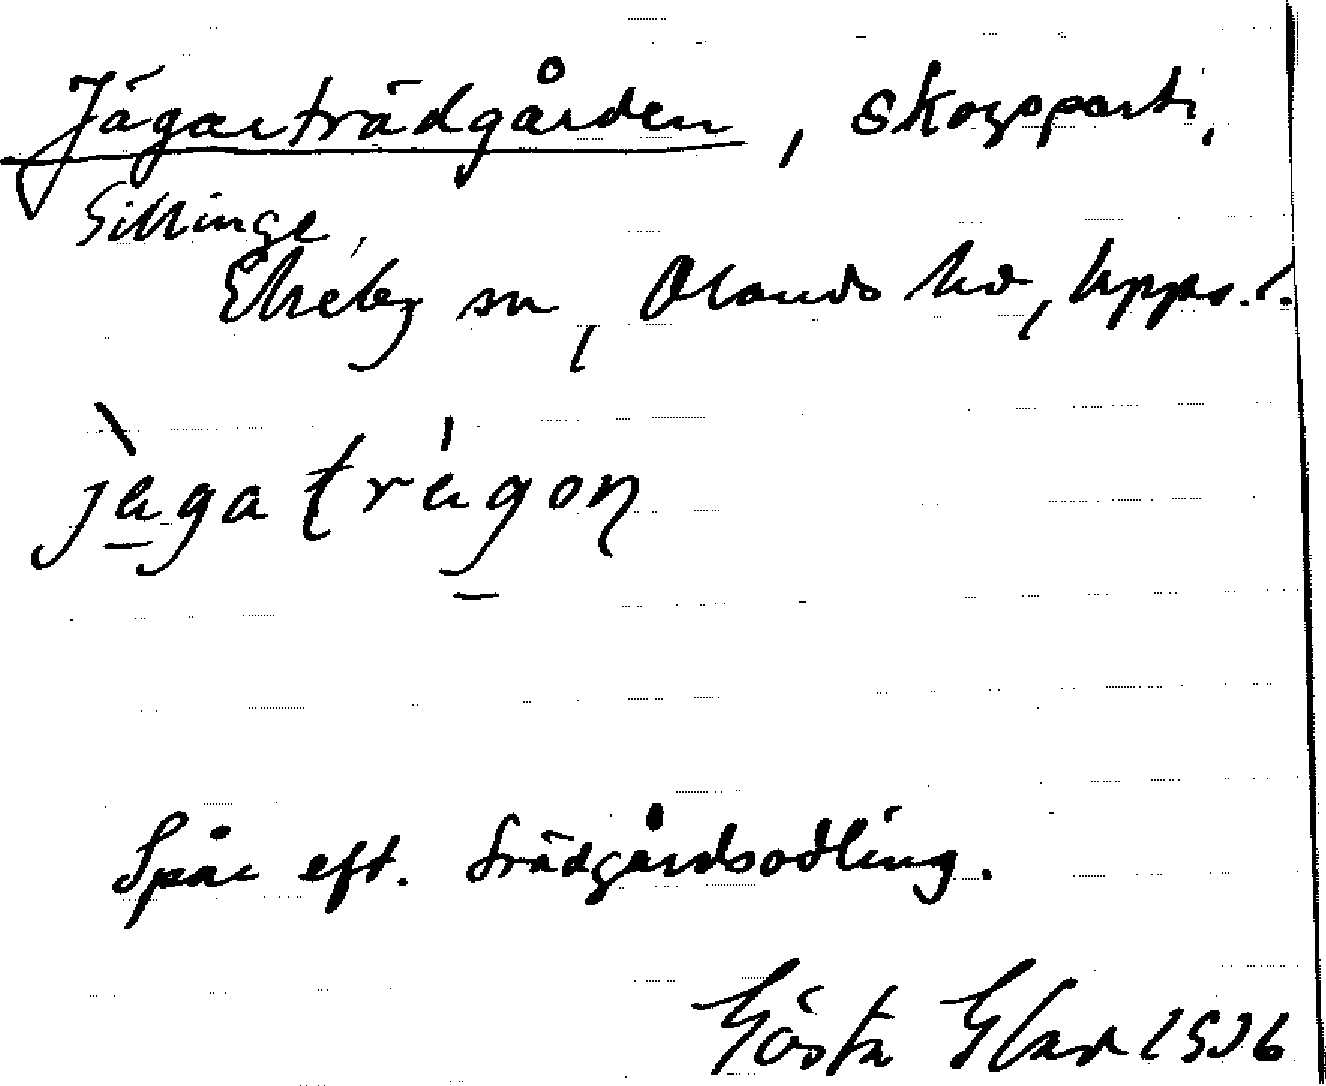 Jägarträdgården, skogsparti,
Gillinge,
Ekeby sn, Olands hd, Upps. l.
jägaträgon
Spår eft. trädgårdsodling.
Gösta Glad 1936